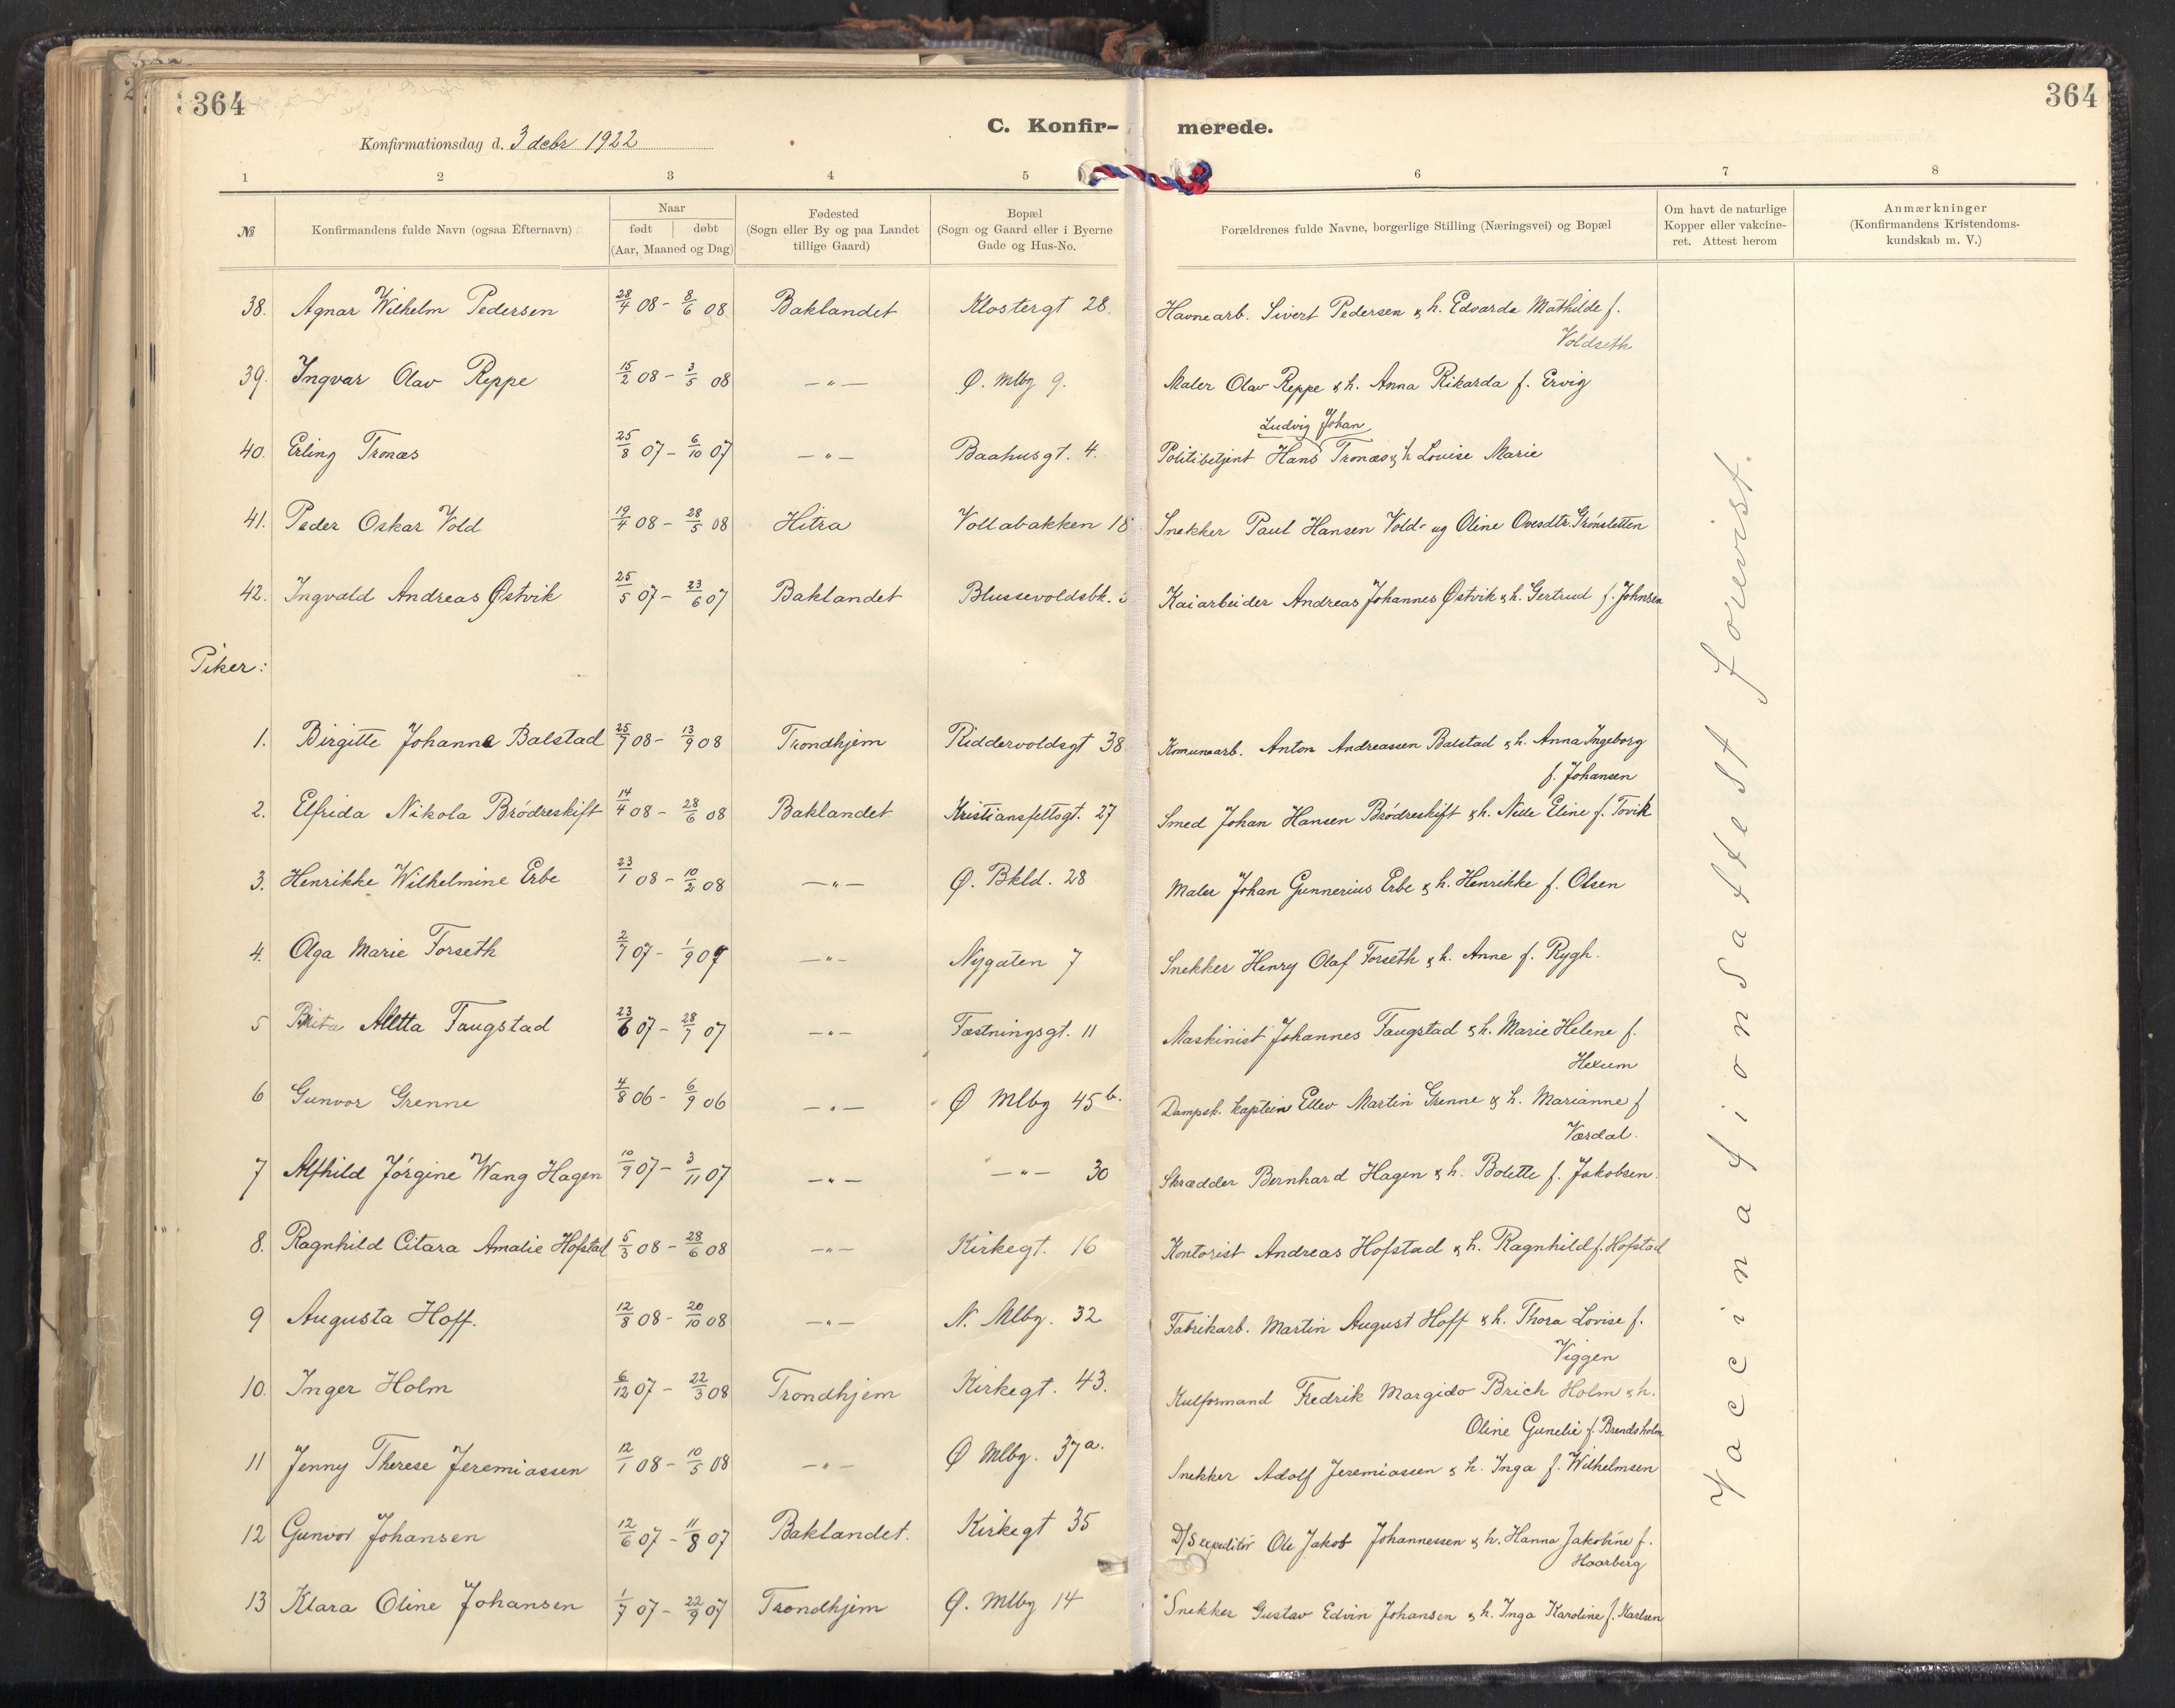 364
364
C. Konfir-
merede.
Konfirmationsdag d. 3 debr 1922
1 2 3 4 5 6 7 8
№
Konfirmandens fulde Navn (ogsaa Efternavn)
Naar
født døbt
(Aar, Maaned og Dag)
Fødested
(Sogn eller By og paa Landet
tillige Gaard)
Bopæl
(Sogn og Gaard eller i Byerne
Gade og Hus-No.
Forældrenes fulde Navne, borgerlige Stilling (Næringsvei) og Bopæl
Om havt de naturlige
Kopper eller vakcine-
ret. Attest herom
Anmærkninger
(Konfirmandens Kristendoms-
kundskab m. V.)
38. Agnar Wilhelm Pedersen 28/4 08 - 8/6 08 Baklandet Klostergt 28. Havnearb. Sivert Pedersen & h. Edvarda Mathilde f.
Voldseth
39. Ingvar Olav Reppe 15/2 08 - 3/5 08 -"- Ø. Mlbg 9. Maler Olav Reppe & h. Anna Rikarda f. Ervig
Ludvig Johan
40. Erling Tronæs 25/8 07 - 6/10 07 -"- Baahusgt. 4. Politibetjent Hans Tronæs & h Louise Marie
41. Peder Oskar Vold 19/4 08 - 28/5 08 Hitra Vollabakken 18 Snekker Paul Hansen Vold og Oline Ovesdtr. Grönsletten
42. Ingvald Andreas Østvik 25/5 07 - 23/6 07 Baklandet Blussevoldsbk. 3 Kaiarbeider Andreas Johannes Østvik & h. Gertrud f. Johnsen
Piker:
1. Birgitte Johanne Balstad 25/7 08 - 13/9 08 Trondhjem Riddervoldsgt 38 Komunearb. Anton Andreassen Balstad & h. Anna Ingeborg
f. Johansen
2. Elfrida Nikola Brödreskift 14/4 08 - 28/6 08 Baklandet Kristiansfeltsgt. 27 Smed Johan Hansen Brödreskift & h. Nelle Eline f. Tovik
3. Henrikke Wilhelmine Erbe 23/1 08 - 10/2 08 -"- Ø. Bkld. 28 Maler Johan Gunnerius Erbe & h. Henrikke f. Olsen
4. Olga Marie Forseth 2/7 07 - 1/9 07 -"- Nygaten 7 Snekker Henry Olaf Forseth & h. Anne f. Rygh.
5 Brita Aletta Faugstad 23/6 07 - 28/7 07 -"- Fæstningsgt. 11 Maskinist Johannes Faugstad & h. Marie Helene f.
Hexum
6 Gunvor Grenne 4/8 06 - 6/9 06 -"- Ø Mlbg 45 b. Dampsk. kaptein Ellev Martin Grenne & h. Marianne f
Værdal.
7 Alfhild Jörgine Wang Hagen 10/9 07 - 3/11 07 -"- -"- 30 Skrædder Bernhard Hagen & h. Bolette f. Jakobsen.
8. Ragnhild Citara Amalie Hofstad 5/3 08 - 28/6 08 -"- Kirkegt. 16 Kontorist Andreas Hofstad & h. Ragnhild f. Hofstad
9 Augusta Hoff. 12/8 08 - 20/10 08 -"- N. Mlbg. 32 Fabrikarb. Martin August Hoff & h. Thora Lovise f.
Viggen
10. Inger Holm 6/12 07 - 22/3 08 Trondhjem Kirkegt. 43. Kulformand Fredrik Margido Brich Holm & h.
Oline Gunelie f. Brendsholm
11 Jenny Therese Jeremiassen 12/1 08 - 10/5 08 -"- Ø Mlbg. 37 a. Snekker Adolf Jeremiassen & h. Inga f. Wilhelmsen
12 Gunvor Johansen 12/6 07 - 11/8 07 Baklandet. Kirkegt 35 D/S expeditör Ole Jakob Johannessen & h. Hanna Jakobine f.
Haarberg
13 Klara Oline Johansen 1/7 07 - 22/9 07 Trondhjem Ø. Mlbg 14 Snekker Gustav Edvin Johansen & h. Inga Karoline f. Karlsen
Vaccinationsattest forevist.